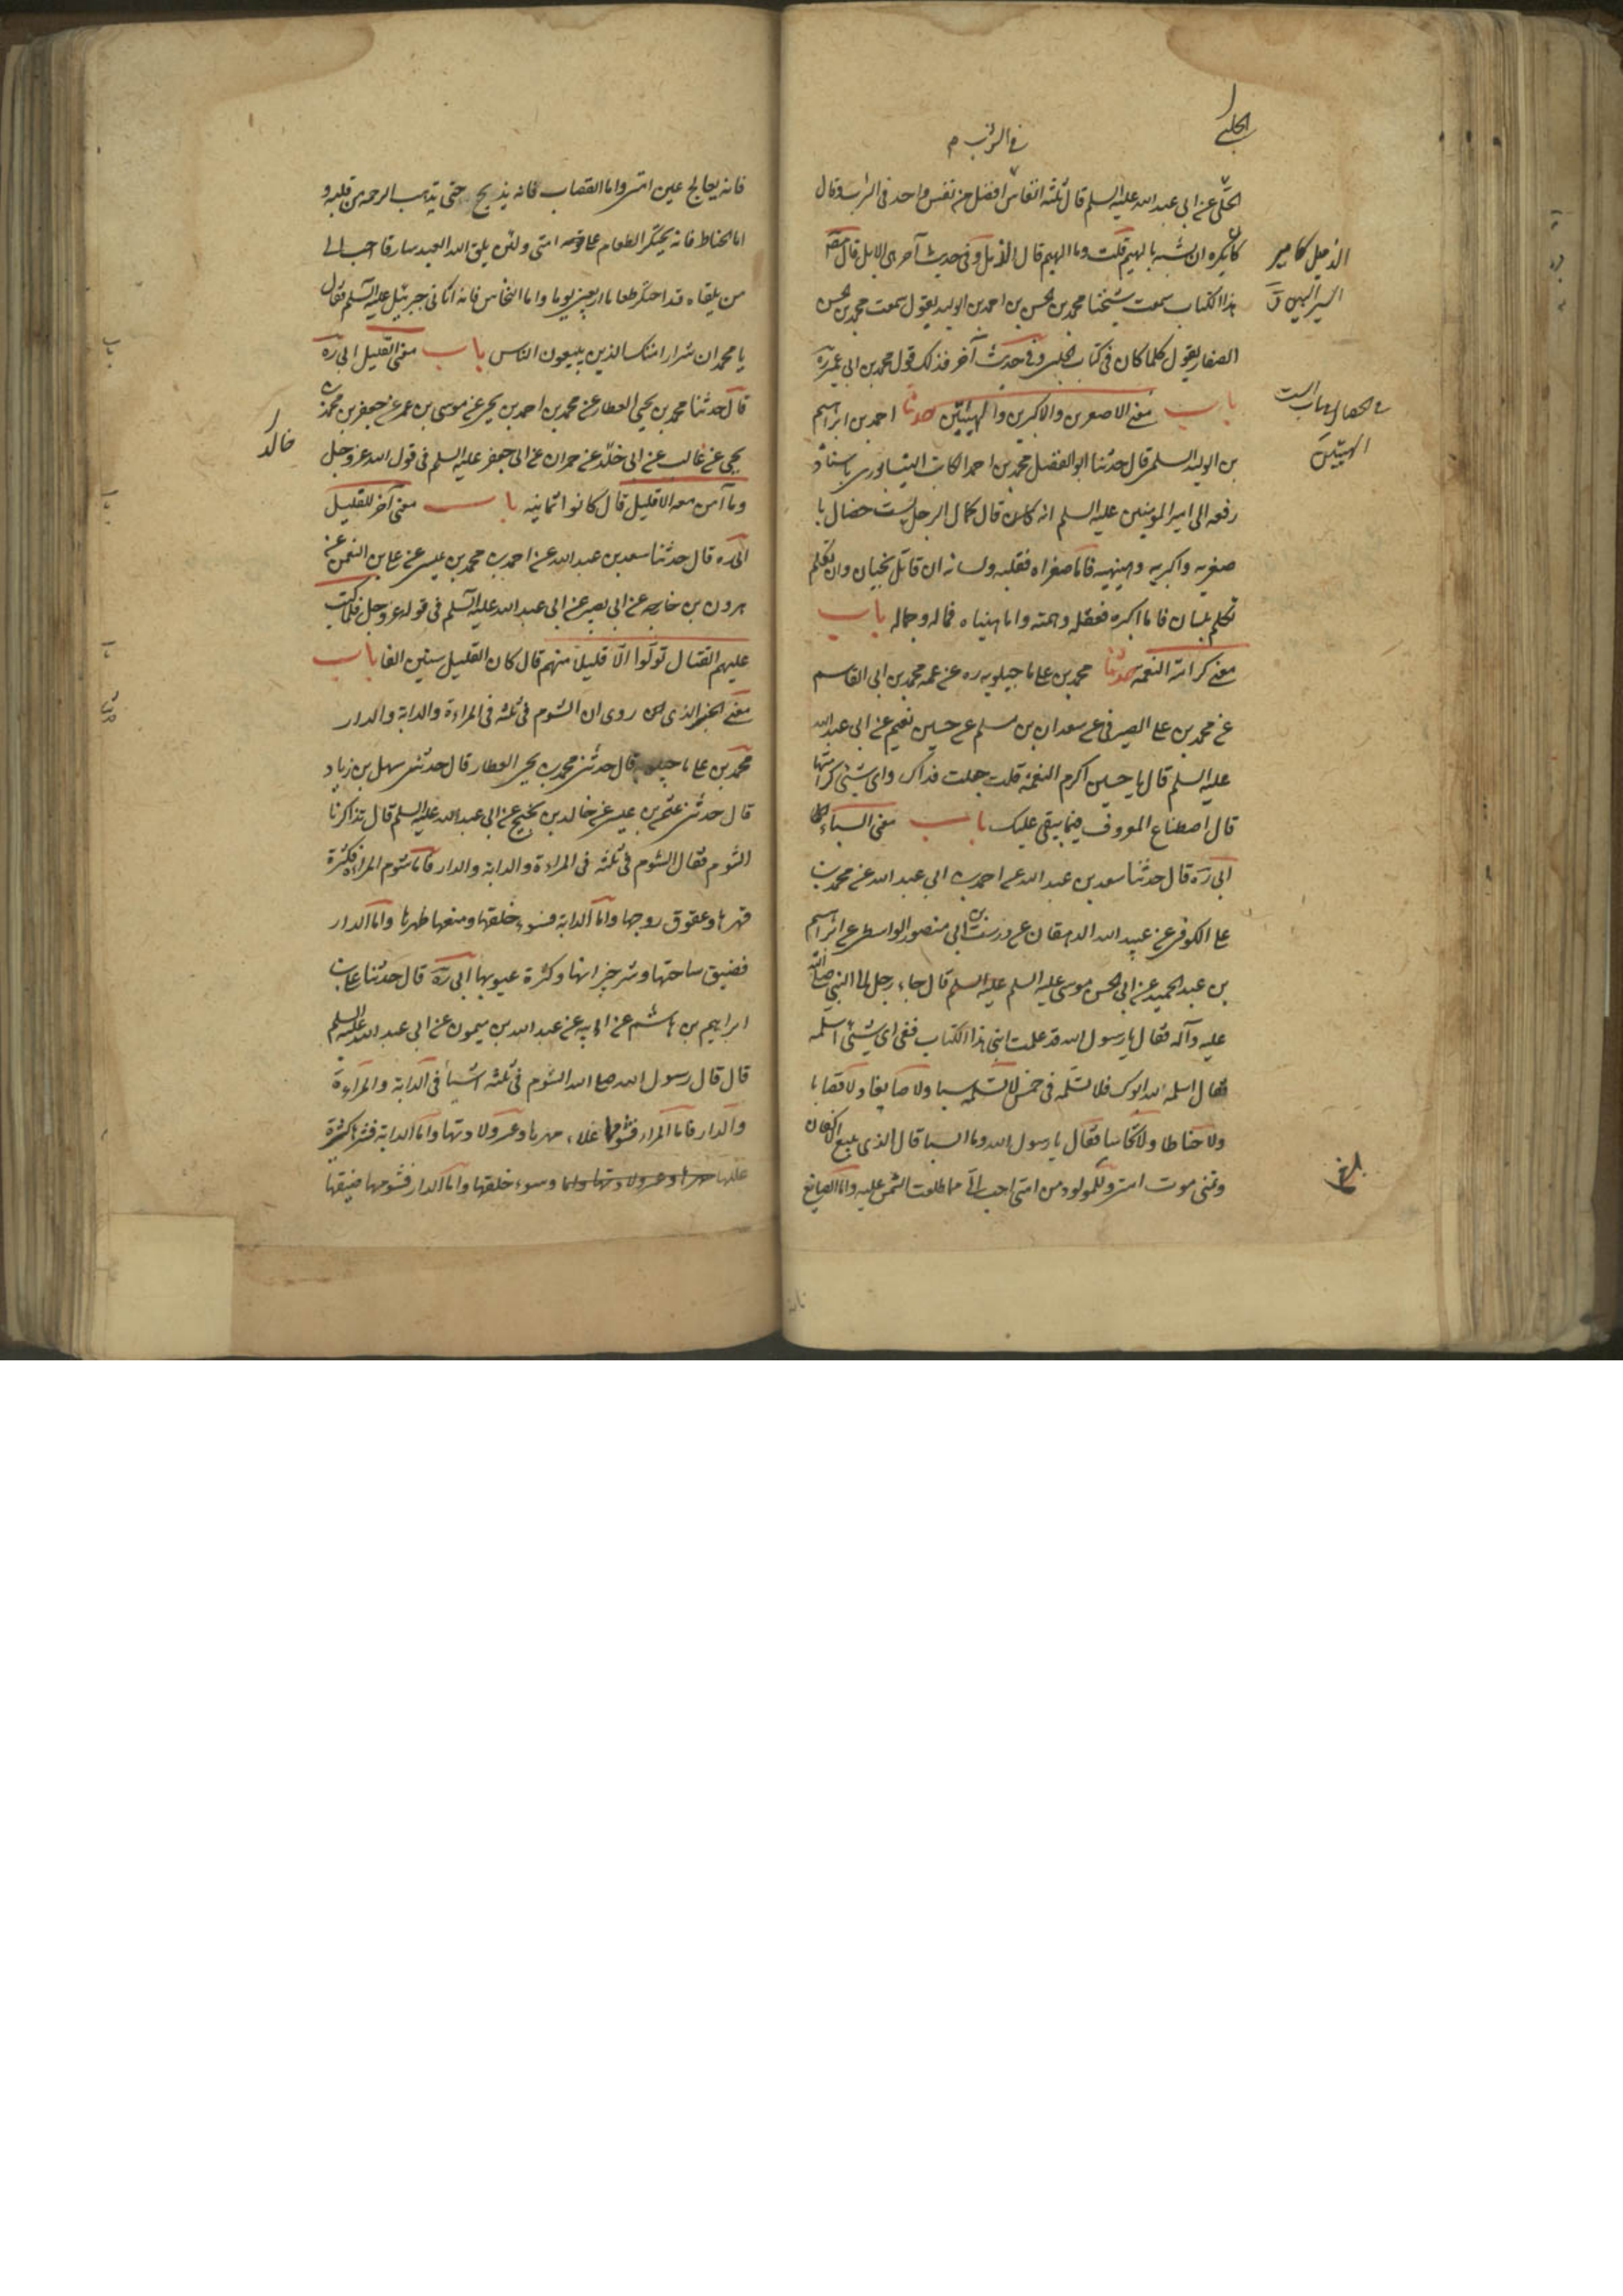 الحلبي
في الشرب م
الحلبي عن ابي عبد الله عليه السلم قال ثلثة انفاس افضل من نفس واحد في الشرب وقال
كان يكره ان يشبه بالهيم قلت وما الهيم قال الزمل وفي حديث آخر هي الابل قال مصنف
هذا الكتاب سمعت شيخنا محمد بن الحسن بن احمد بن الوليد يقول سمعت محمد بن الحسن
الصفار يقول كلما كان في كتاب الحلبي وفي حديث آخر فذلك قول محمد بن ابي عمير ره
باب معنى الاصغرين والاكبرين والهيئتين حدثنا احمد بن ابراهيم
بن الوليد السلمي قال حدثنا ابو الفضل محمد بن احمد الكاتب النيشابوري باسناده
رفعه الى امير المومنين عليه السلم انه قال كمال الرجل بست خصال با
صغريه واكبريه وهيئتيه فاما صغراه فقلبه ولسانه ان قاتل قاتل بجنان وان تكلم
تكلم بلسان فاما اكبره فعقله وهمته واما هيئتاه فماله وجماله باب
معنى كرامة النعمة حدثنا محمد بن علي ماجيلويه ره عن عمه محمد بن ابي القاسم
عن محمد بن علي الصيرفي عن سعدان بن مسلم عن حسين نعيم عن ابي عبد الله
عليه السلم قال يا حسين اكرم النعمة قلت جعلت فداك واي شيئ كرامتها
قال اصطناع المعروف فيما يبقى عليك باب معنى السباء
ابي ره قال حدثنا سعد بن عبد الله عن احمد بن ابي عبد الله عن محمد بن
علي الكوفي عن عبيد الله الدهقان عن درست بن ابي منصور الواسطي عن ابراهيم
بن عبد الحميد عن ابي الحسن موسى عليه السلم عليه السلم قال جاء رجل الى النبي صلى الله
عليه وآله فقال يا رسول الله قد علمت ابني هذا الكتاب ففي اي شيئ اسلمه
فقال اسلمه لله ابوك فلا تسلمه في خمس لا تسلمه سبا ولا صايغا ولا قصابا
ولا حناطا ولا نخاسا فقال يا رسول الله وما السبا قال الذي يبيع الاكفان
وتمنى موت امتي وللمولود من امتي احب الي مما طلعت الشمس عليه واما الصايغ
السير اللين ق
في الخصال في باب الست
الهيئتين
بلغ
فانه يعالج عين امتي واما القصاب فانه يذبح حتى يذهب الرحمة من قلبه و
اما الحناط فانه يحتكر الطعام على امتي ولئن يلق الله العبد سارقا احب الي
من يلقاه قد احتكر طعاما اربعين يوما واما النخاس فانه اتاني جبرئيل عليه السلم فقال
يا محمد ان شرار امتك الذين يبيعون الناس باب معنى القليل ابي ره
قال حدثنا محمد بن يحيى العطار عن محمد بن احمد بن يحيى عن موسى بن عمر عن جعفر بن محمد بن
يحيى عن غالب عن ابي خلد عن حمران عن ابي جعفر عليه السلم في قول الله عز وجل
وما آمن معه الا قليل قال كانوا ثمانية باب معنى آخر للقليل
ابي ره قال حدثنا سعد بن عبد الله عن احمد بن محمد بن عيسى عن علي بن النعمن عن
هرون بن خارجه عن ابي بصير عن ابي عبد الله عليه السلم في قوله عز وجل فلما كتب
عليهم القتال تولوا الا قليلا منهم قال كان القليل ستين الفا باب
معنى الخبر الذي روى ان الشوم في ثلثة في المراءة والدابة والدار
محمد بن علي ماجيلويه قال حدثني محمد بن يحيى العطار قال حدثني سهل بن زياد
قال حدثني عثمن بن عيسى عن خالد بن نجيح عن ابي عبد الله عليه السلم قال تذاكرنا
الشوم فقال الشوم في ثلثة في المراءة والدابة والدار فاما شوم المراءة فكثرة
مهرها وعقوق زوجها واما الدابة فسوء خلقها ومنعها ظهرها واما الدار
فضيق ساحتها وشر جيرانها وكثرة عيوبها ابي ره قال حدثنا علي بن
ابراهيم بن هاشم عن ابيه عن عبد الله بن ميمون عن ابي عبد الله عليه السلم
قال قال رسول الله صلى الله الشوم في ثلثه اشيأ في الدابة والمراءة
والدار فاما المراء فشومها غلاء مهرها وعسر ولادتها واما الدابة فشرها كثرة
عللها وسوء خلقها واما الدار فشومها ضيقها
خالد